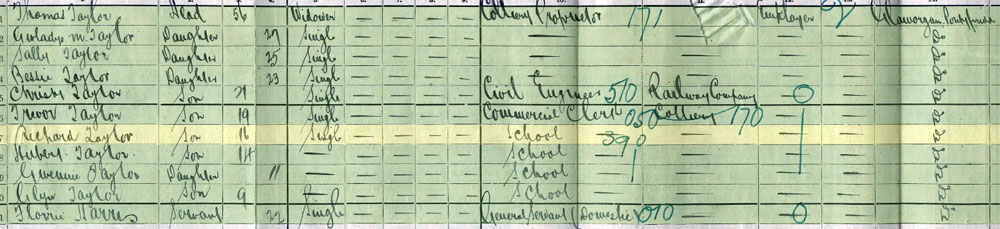 Thomas Taylor Head 56 Widower — — — — Colliery Proprietor 171 — Employer Glamorgan Pontypridd
2 Gwladys M. Taylor Daughter 27 Single — — — — — — — — Do
3 Sally Taylor Daughter 25 Single — — — — — — — — Do
4 Bessie Taylor Daughter 23 Single — — — — — — — — Do
5 Taylor Son 21 Single — — — — Civil Engineer 510 Railway Company 0 — Do
Trevor Taylor Son 19 Single — — — — Commercial Clerk 050 Colliery 170 — Do
7 Richard Taylor Son 16 Single — — — — School 390 — — Do
8 Hubert Taylor Son 14 — — — — — School — — Do
9 Taylor Daughter 11 — — — — — School — — Do
Glyn Taylor Son 9 — — — — — School — — — Do
Florrie Servant 22 Single — — — — General Servant (Domestic) 010 — 0 — Do